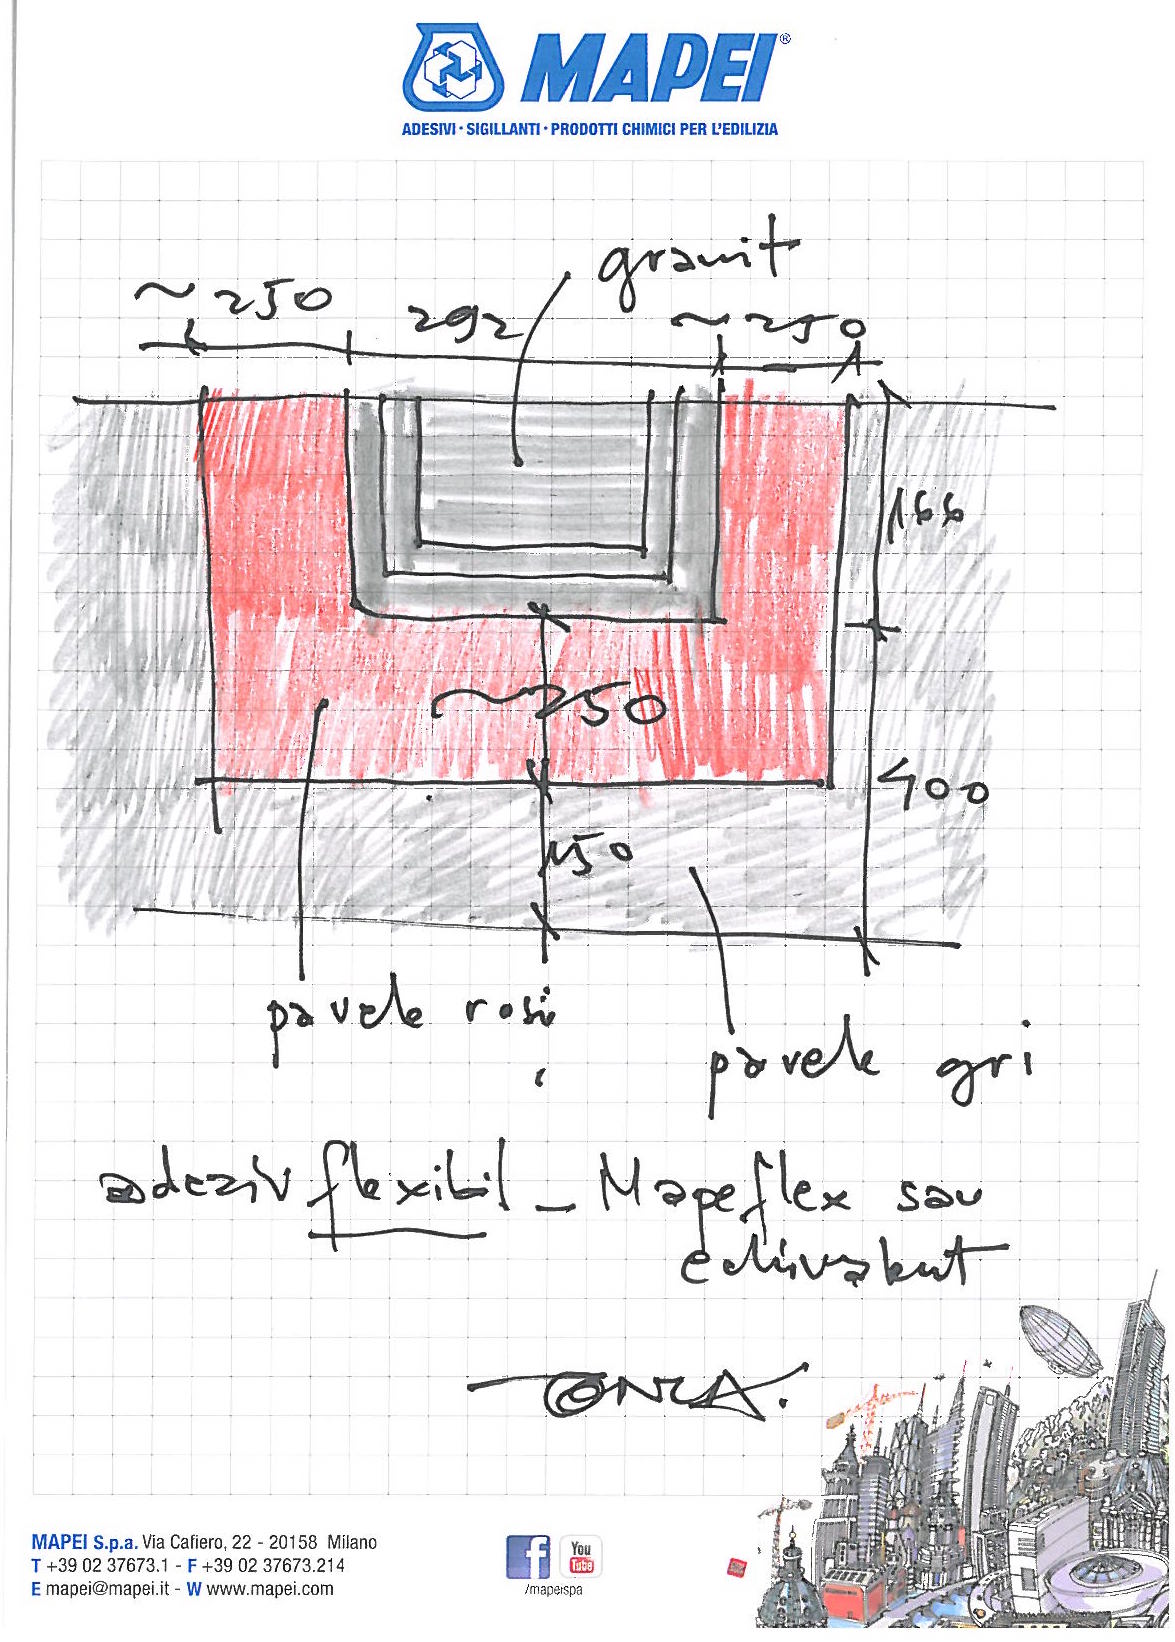 MAPEI®
ADESIVI • SIGILLANTI • PRODOTTI CHIMICI PER L'EDILIZIA
granit
~250
292
~250
166
~250
400
150
pavele rosii
pavele gri
adeziv flexibil - Mapeflex sau
echivalent
MAPEI S.p.a. Via Cafiero, 22 - 20158 Milano
T +39 02 37673.1 - F +39 02 37673.214
E mapei@mapei.it - W www.mapei.com
You
Tube
/mapeispa